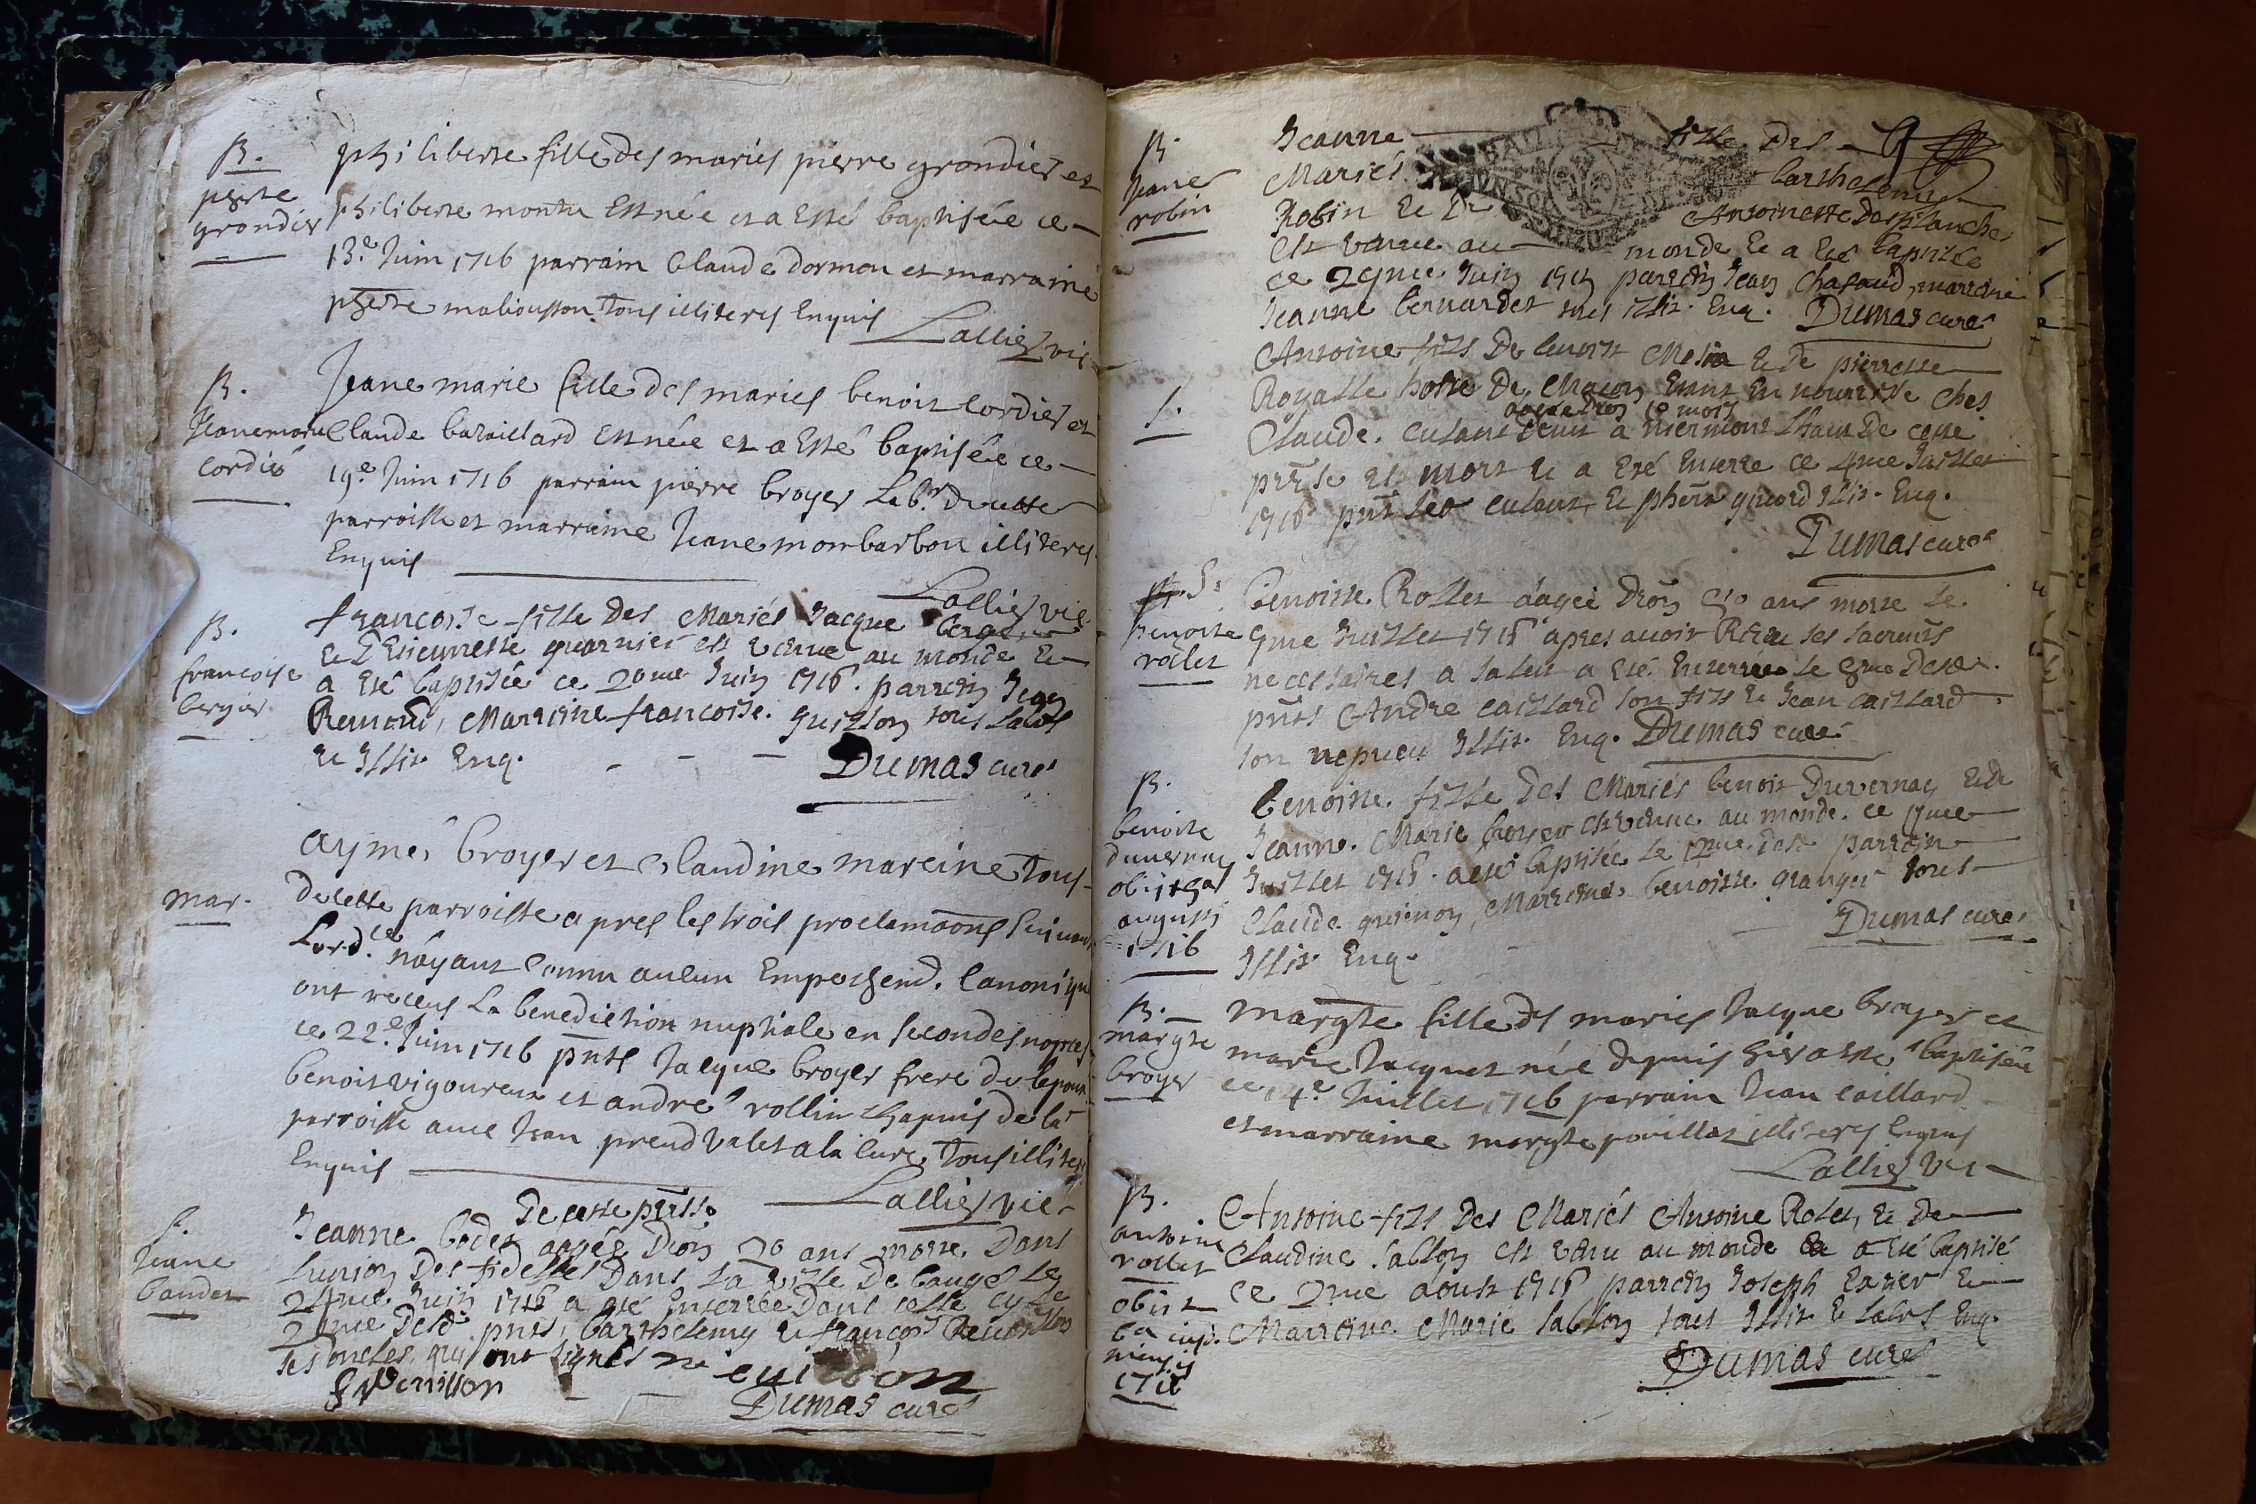 B.
phte
grondier
philiberte fille des mariés pierre grondier et
philiberte montu est née et a esté baptisée ce
13.e Juin 1716 parrain Claude dormon et marraine
phte mabiousson tous illiteres Enquis
Lallier vic
B.
Jeane marie
cordier
Jeane marie fille des mariés benoit cordier et
Claude baraillard est née et a esté baptisée ce
19.e Juin 1716 parrain pierre broyer Lab.r de cette
parroisse et marraine Jeane mombarbon illiteres
Enquis
Lallier vic
B.
francoise
bergier
francoise fille des Mariés Jacque
Et D Etiennette guarnier est venue au monde Et
a Eté baptisée ce 20me Juin 1716. parrein Jean
Remond, Marreine francoise. guillon tous
Et Illit. Enq.
Dumas curé
mar.
aymé broyer et Claudine mareine tous
de cette parroisse apres les trois proclamaons suivant
Lord.ce nayant connu aucun Empechemd. Canonique
ont receus La benediction nuptiale en secondes nopces
ce 22.e Juin 1716 pnts Jacque broyer frere de lepoux
benoit vigoureux et andré rollin chapuis de la
parroisse avec Jean prend valet a la cure tous illiteres
Enquis
Lallier vic
S.
Jeane
baudet
de cette prsse
Jeanne bodet aagée Dron 20 ans morte. Dans
Lunion Des fidelles Dans La ville De baugé Le
24me Juin 1716 a eté Enterrée Dans celle cy Le
Desd. pnts, barthelemy Et françois
ses oncles, qui ont signés
Dumas curé
B.
Jeane
robin
Jeanne fille Des
Mariés barthelemy
Robin Et Dr Antoinette Desplanche
Est venue au monde Et a Eté baptisée
ce 29me Juin 1716 parrein Jean Chagaud, marreine
Jeanne bernardet tous Illit. Enq. Dumas curé
S.
Antoine fils De benoit Et De pierrette
Royalle hotte De Macon Etant En nourrisse Ches
aagée Dron 10 mois
Claude. a niermont Lhaut De cette
prsse Et mort Et a Eté Enterré ce 4me Juillet
1716 Et Illit. Enq.
Dumas curé
S.
benoite
rollet
benoitte. Rollet aagée Dron ans morte Le
9me Juillet 1716 apres avoir Receu ses sacrents
necessaires a salut a Eté Enterrée Le Desd.
pnts Andre caillard son fils Et Jean caillard
son nepveu Illit. Enq. Dumas curé
B.
benoite
duvernay
obiit 5a
augusti
1716
benoitte. fille Des Mariés benoit Duvernay Et De
Jeanne. Marie est venue au monde. ce
Juillet 1716. a eté baptisée Le Desd. parrein
Claude. guionon, Marreine benoitte granger tous
Illit Enq.
Dumas curé
B.
margte
broyer
margte fille ds mariés Jacque broyer et
marie Jacquet née depuis hier a esté baptisée
ce 14e Juillet 1716 parrain Jean caillard
et marraine margte pouillat illiteres Enquis
Lallier vic
B.
antoine
rollet
obiit
mensis
1716
Antoine fils Des Mariés Antoine Rolet, Et De
Claudine. sablon est venu au monde Et a Eté baptisé
ce 2me aoust 1716 parrein Joseph Et
Marreine Marie sablon tous Illit Et Enq.
Dumas curé